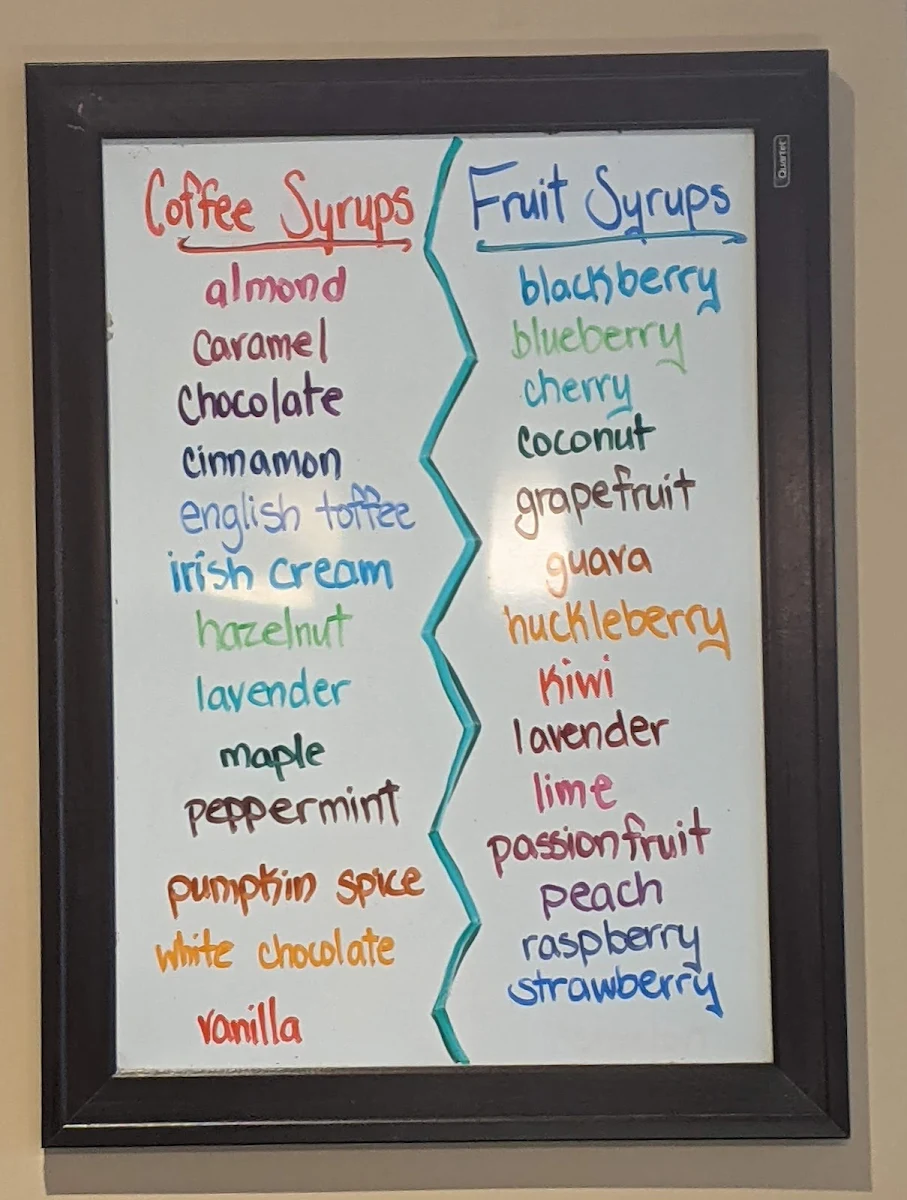 Quartet
Coffee Syrups
almond
caramel
chocolate
cinnamon
english toffee
irish cream
hazelnut
lavender
maple
peppermint
pumpkin spice
white chocolate
vanilla
Fruit Syrups
blackberry
blueberry
cherry
coconut
grapefruit
guava
huckleberry
kiwi
lavender
lime
passionfruit
peach
raspberry
strawberry